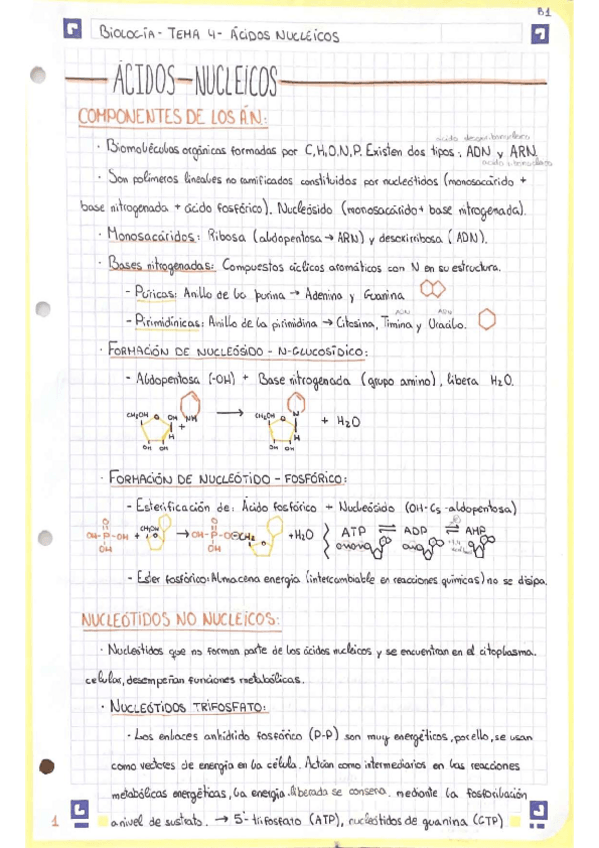 B1
BIOLOGÍA - TEMA 4 - ÁCIDOS NUCLEICOS
ÁCIDOS NUCLEICOS
COMPONENTES DE LOS ÁN:
ácido desoxirribonucleico
· Biomoléculas orgánicas formadas por C,H,O,N,P. Existen dos tipos: ADN y ARN.
ácido ribonucleico
· Son polímeros lineales no ramificados constituidos por nucleótidos (monosacárido +
base nitrogenada + ácido fosfórico). Nucleósido (monosacárido + base nitrogenada).
· Monosacáridos: Ribosa (aldopentosa → ARN) y desoxirribosa (ADN).
· Bases nitrogenadas: Compuestos cíclicos aromáticos con N en su estructura.
- Púricas: Anillo de la purina → Adenina y Guanina
- Pirimidínicas: Anillo de la pirimidina → Citosina, Timina y Uracilo.
· FORMACIÓN DE NUCLEÓSIDO - N-GLUCOSÍDICO:
- Aldopentosa (-OH) + Base nitrogenada (grupo amino), libera H2O.
CH2OH O OH NH → CH2OH O N + H2O
+ H H
OH OH OH OH
· FORMACIÓN DE NUCLEÓTIDO - FOSFÓRICO:
- Esterificación de: Ácido fosfórico + Nucleósido (OH-C5-aldopentosa)
OH-P-OH + CH2OH → OH-P-O-CH2 + H2O ATP ⇌ ADP ⇌ AMP
O O
OH OH
- Ester fosfórico: Almacena energía (intercambiable en reacciones químicas) no se disipa.
NUCLEÓTIDOS NO NUCLEICOS:
· Nucleótidos que no forman parte de los ácidos nucleicos y se encuentran en el citoplasma.
celular, desempeñan funciones metabólicas.
· NUCLEÓTIDOS TRIFOSFATO:
· Los enlaces anhídrido fosfórico (P-P) son muy energéticos, por ello, se usan
como vectores de energía en la célula. Actúan como intermediarios en las reacciones
metabólicas energéticas, la energía liberada se conserva mediante la fosforilación
a nivel de sustrato. → 5'-trifosfato (ATP), nucleótidos de guanina (GTP)
1